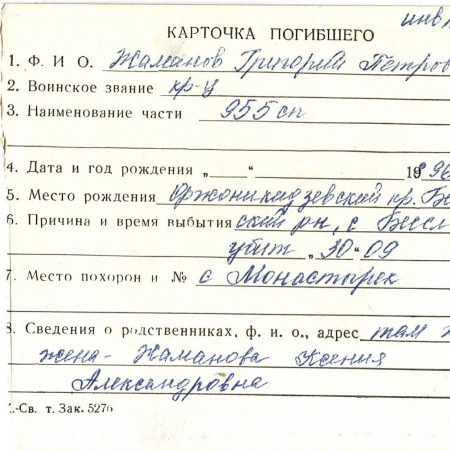 инв
КАРТОЧКА ПОГИБШЕГО
1. Ф. И О. Жаманов Григорий Петров
2. Воинское звание кр-ц
3. Наименование части 955 сп
4. Дата и год рождения „ “ 1896
5. Место рождения Орджоникидзевский кр. Бе
6. Причина и время выбытия ский рн, с Бессл
убит „30“ 09
7. Место похорон и № с Монастырек
8. Сведения о родственниках, ф. и. о., адрес там
жена- Жаманова Ксения
Александровна
-Св. т. Зак. 527